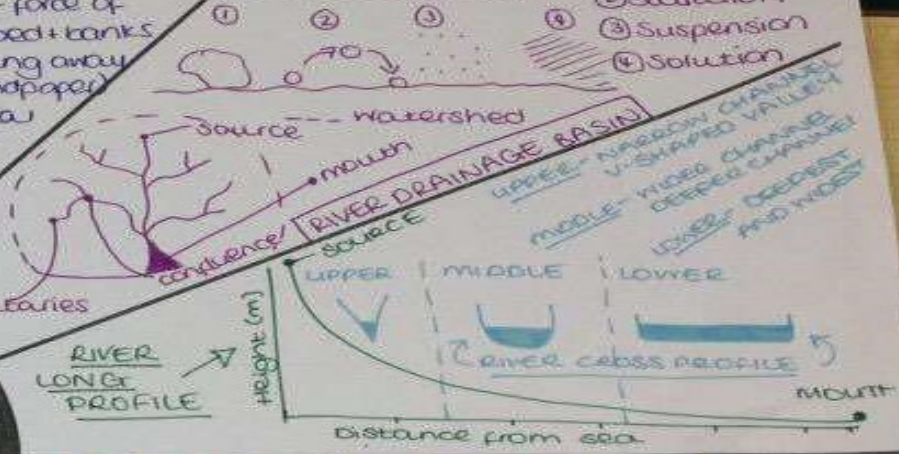 force of
bed+banks
① ② ③ ④
③ Suspension
④ Solution
source
--- watershed
mouth
confluence
RIVER DRAINAGE BASIN
UPPER- NARROW CHANNEL
V-SHAPED VALLEY
MIDDLE- WIDER CHANNEL
DEEPER CHANNEL
LOWER- DEEPEST
AND WIDEST
SOURCE
UPPER
MIDDLE
LOWER
RIVER CROSS PROFILE
RIVER
LONG
PROFILE
Height (m)
MOUTH
Distance from sea